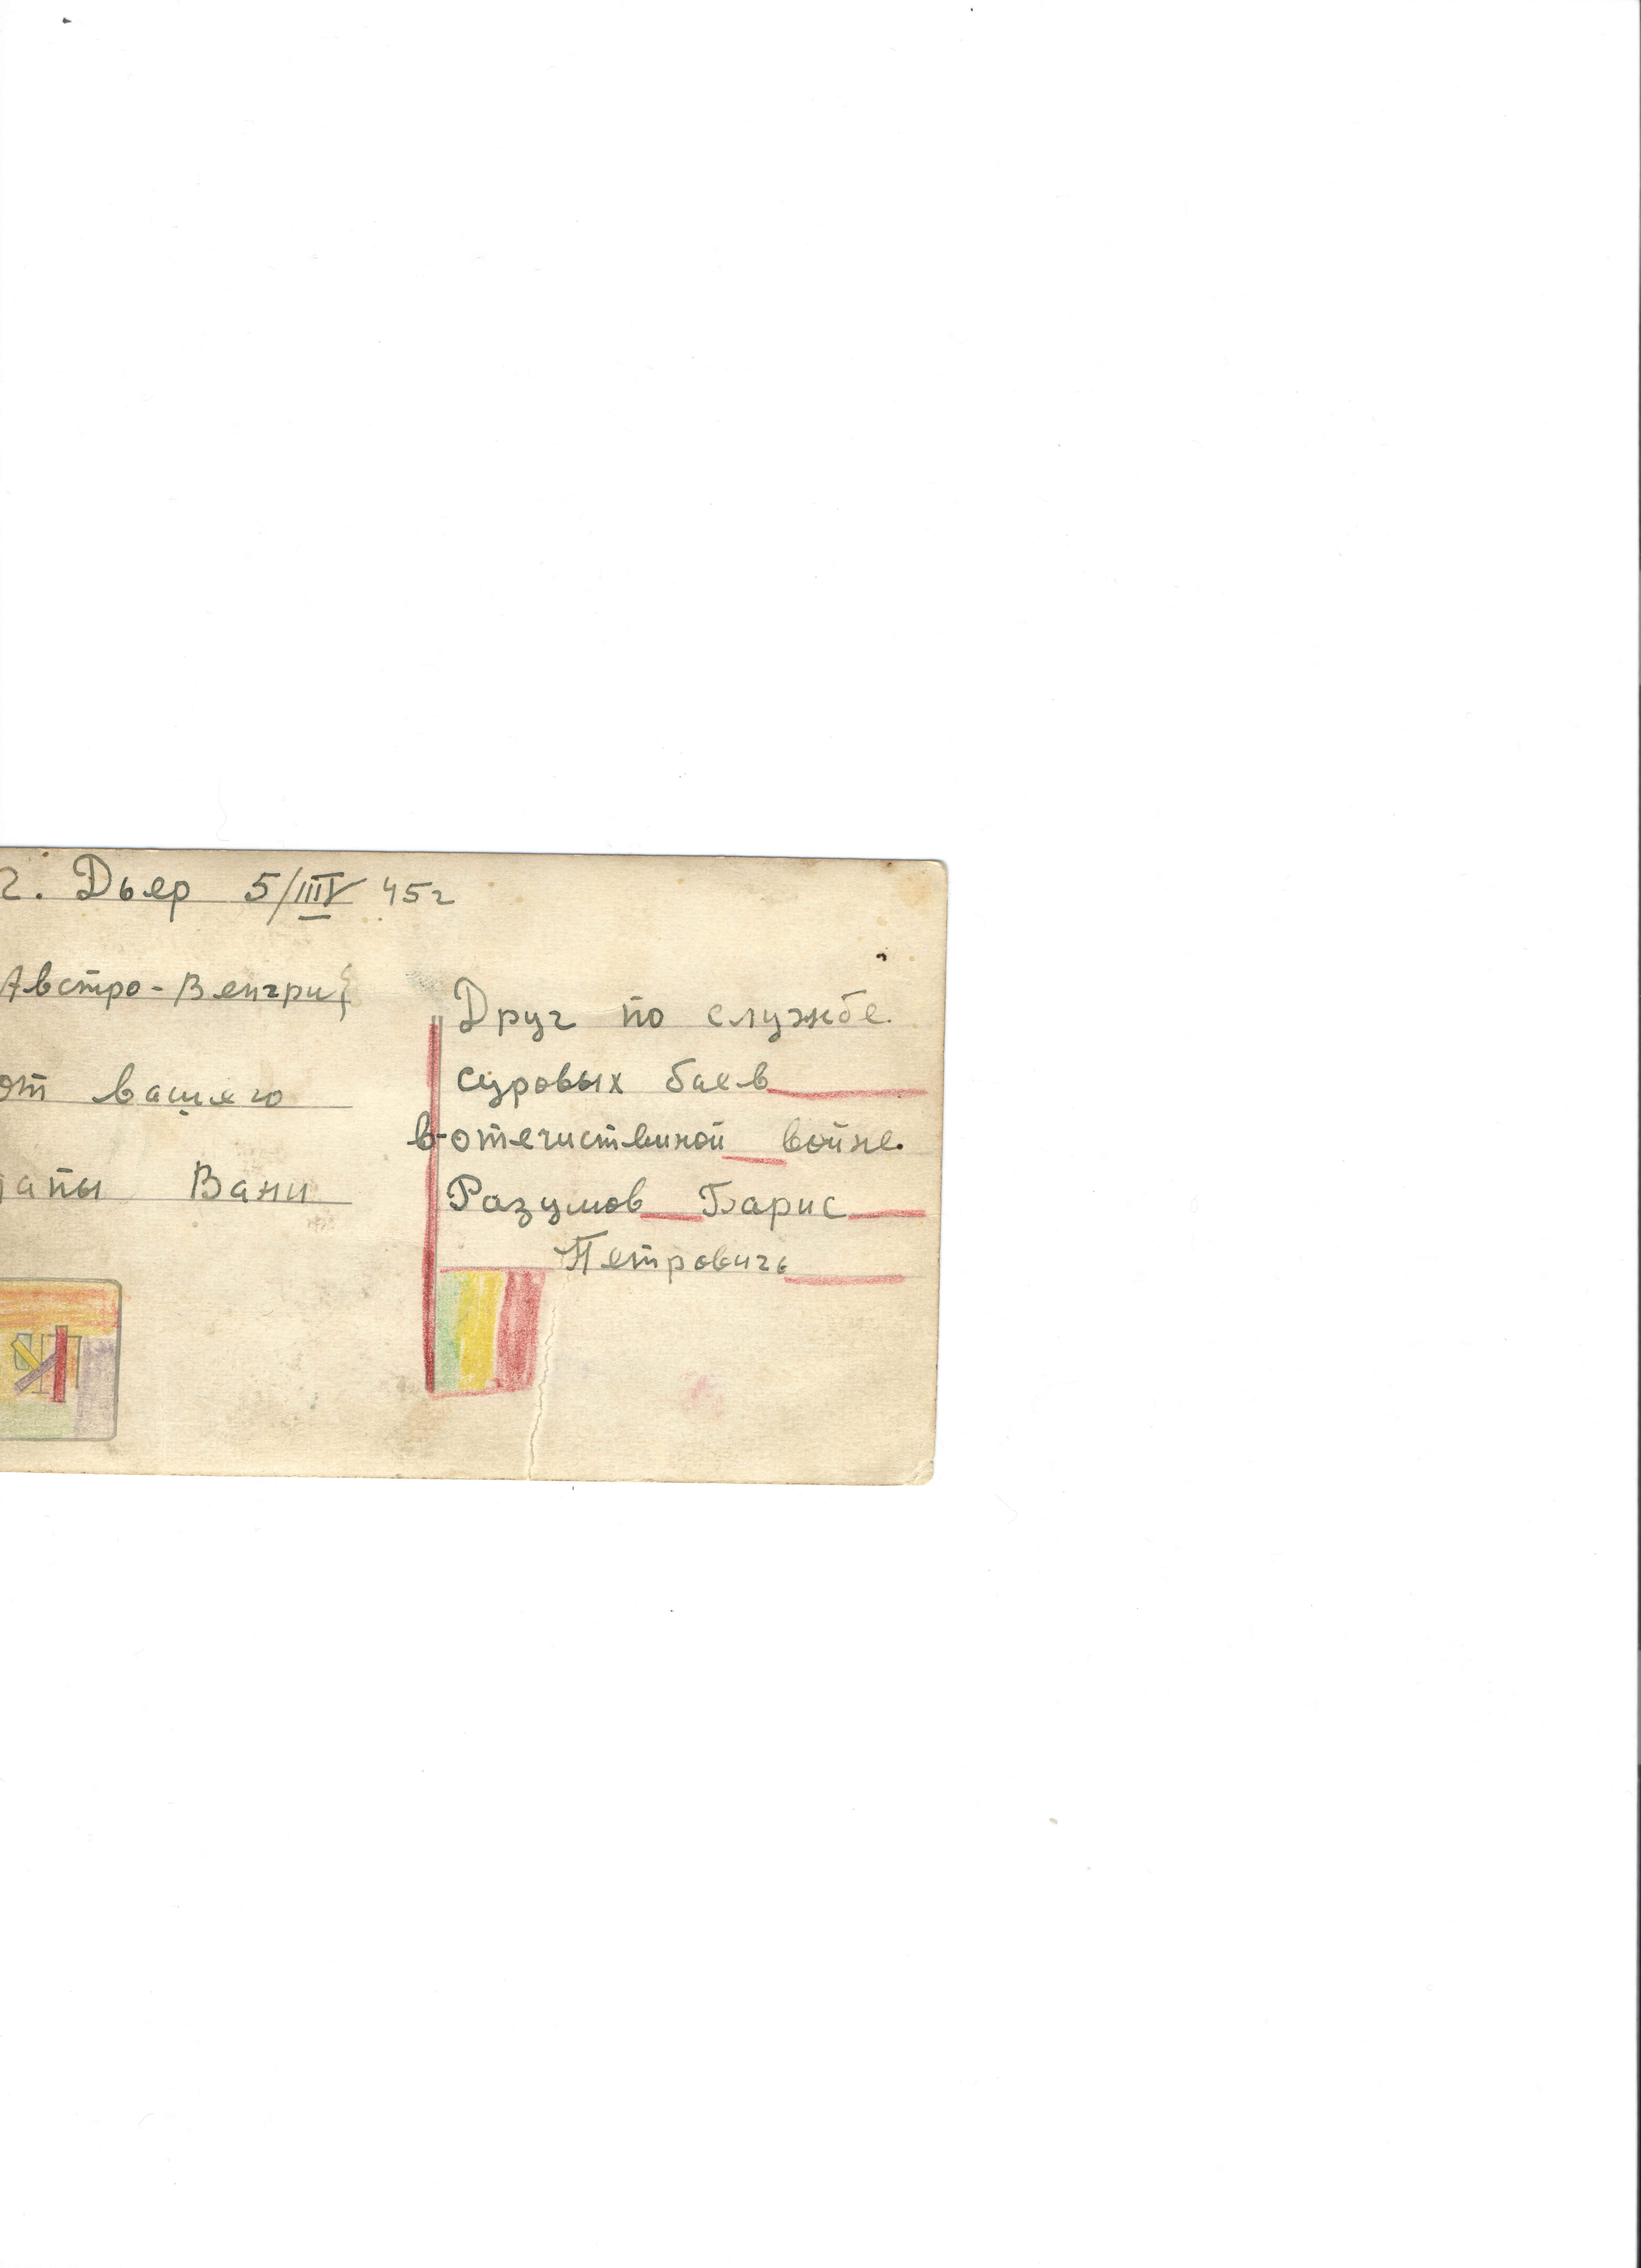 г. Дьер 5/IIIV 45г
Австро-Венгри
от вашего
папы Вани
Друг по службе
суровых баев
в-отечиственной войне.
Разумов Барис
Петровичь